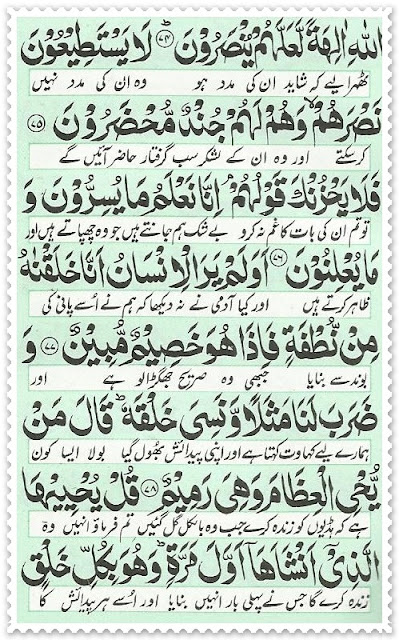 اللّٰهِ اٰلِهَةً لَّعَلَّهُمْ یُنْصَرُوْنَ ﴿۷۴﴾ لَا یَسْتَطِیْعُوْنَ
ٹھہرالیے کہ شاید ان کی مدد ہو وہ ان کی مدد نہیں
نَصْرَهُمْ وَهُمْ لَهُمْ جُنْدٌ مُّحْضَرُوْنَ ﴿۷۵﴾
کرسکتے اور وہ ان کے لشکر سب گرفتار حاضر آئیں گے
فَلَا یَحْزُنْكَ قَوْلُهُمْ اِنَّا نَعْلَمُ مَا یُسِرُّوْنَ وَ
تو تم ان کی بات کا غم نہ کرو بے شک ہم جانتے ہیں جو وہ چھپاتے ہیں اور
مَا یُعْلِنُوْنَ ﴿۷۶﴾ اَوَلَمْ یَرَ الْاِنْسَانُ اَنَّا خَلَقْنٰهُ
ظاہر کرتے ہیں اور کیا آدمی نے نہ دیکھا کہ ہم نے اسے پانی کی
مِنْ نُّطْفَةٍ فَاِذَا هُوَ خَصِیْمٌ مُّبِیْنٌ ﴿۷۷﴾ وَ
بوند سے بنایا جبھی وہ صریح جھگڑالو ہے اور
ضَرَبَ لَنَا مَثَلًا وَّنَسِیَ خَلْقَهٗ قَالَ مَنْ
ہمارے لیے کہاوت کہتا ہے اور اپنی پیدائش بھول گیا بولا ایسا کون
یُّحْیِ الْعِظَامَ وَهِیَ رَمِیْمٌ ﴿۷۸﴾ قُلْ یُحْیِیْهَا
ہے کہ ہڈیوں کو زندہ کرے جب وہ بالکل گل گئیں تم فرماؤ انہیں وہ
الَّذِیْۤ اَنْشَاَهَاۤ اَوَّلَ مَرَّةٍ وَهُوَ بِكُلِّ خَلْقٍ
زندہ کرے گا جس نے پہلی بار انہیں بنایا اور اسے ہر پیدائش کا